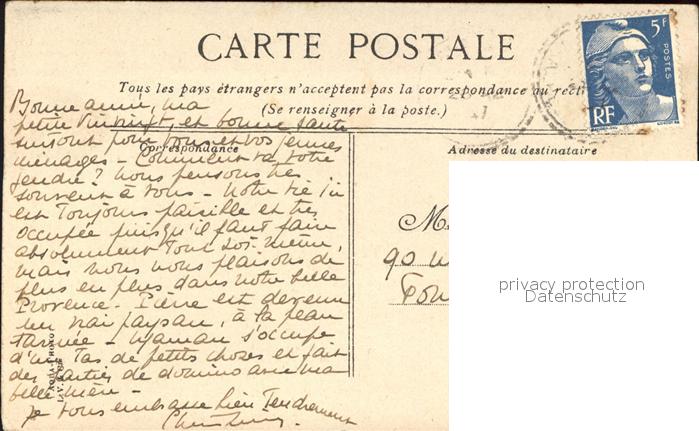 CARTE POSTALE
Tous les pays étrangers n'acceptent pas la correspondance au recto
(Se renseigner à la poste.)
Correspondance
Adresse du destinataire
5F
POSTES
RF
Bonne année, ma
petite et bonne santé
surtout pour vous et vos jeunes
ménages - Comment va votre
gendre ? Nous pensons très
souvent à vous - Notre vie ici
est toujours paisible et très
occupée puisqu'il faut faire
absolument tout soi-même,
mais nous nous plaisons de
plus en plus dans notre belle
Provence - Pierre est devenu
un vrai paysan, à la peau
tannée - Maman s'occupe
d'un tas de petites choses et fait
des parties de dominos avec ma
belle-mère -
Je vous embrasse bien tendrement
90
privacy protection
Datenschutz